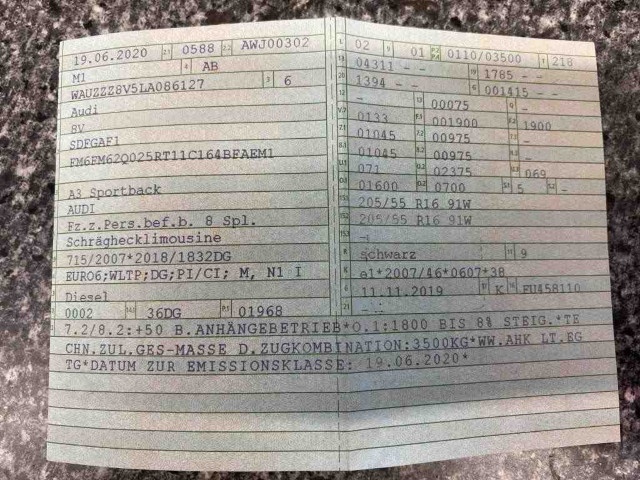 19.06.2020 2.1 0588 2.2 AWJ00302
M1 4 AB
WAUZZZ8V5LA086127 3 6
Audi
8V
SDFGAF1
FM6FM62Q025RT11C164BFAEM1
A3 Sportback
AUDI
Fz.z.Pers.bef.b. 8 Spl.
Schräghecklimousine
715/2007*2018/1832DG
EURO6;WLTP;DG;PI/CI; M, N1 I
Diesel
0002 14.1 36DG P.1 01968
02 9 01 P.2 P.4 0110/03500 T 218
18 04311 - - 19 1785 - -
20 1394 - - G 001415 - -
12 - 13 00075 Q -
V.7 0133 F.1 001900 F.2 1900
7.1 01045 7.2 00975 7.3 -
8.1 01045 8.2 00975 8.3 -
U.1 071 U.2 02375 U.3 069
O.1 01600 O.2 0700 S.1 5 S.2 -
15.1 205/55 R16 91W
15.2 205/55 R16 91W
15.3 -
R schwarz 11 9
K e1*2007/46*0607*38
6 11.11.2019 17 K 16 FU458110
21 -
7.2/8.2:+50 B.ANHÄNGEBETRIEB*O.1:1800 BIS 8% STEIG.*TE
CHN.ZUL.GES-MASSE D.ZUGKOMBINATION:3500KG*WW.AHK LT.EG
TG*DATUM ZUR EMISSIONSKLASSE: 19.06.2020*